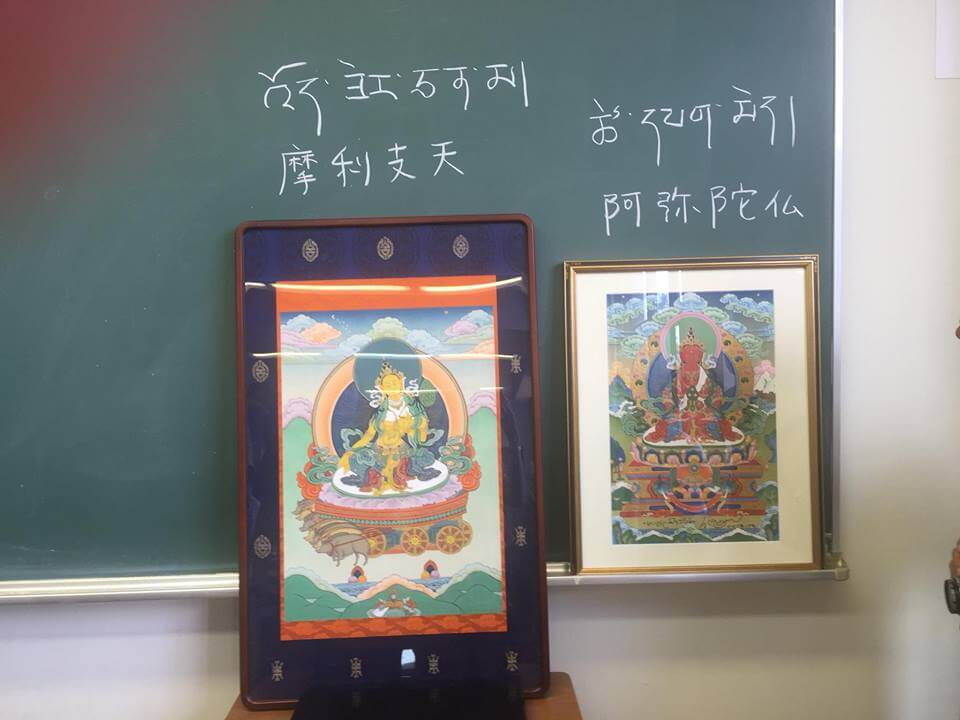 འོད་ཟེར་ཅན་མ།
摩利支天
ཚེ་དཔག་མེད།
阿弥陀仏